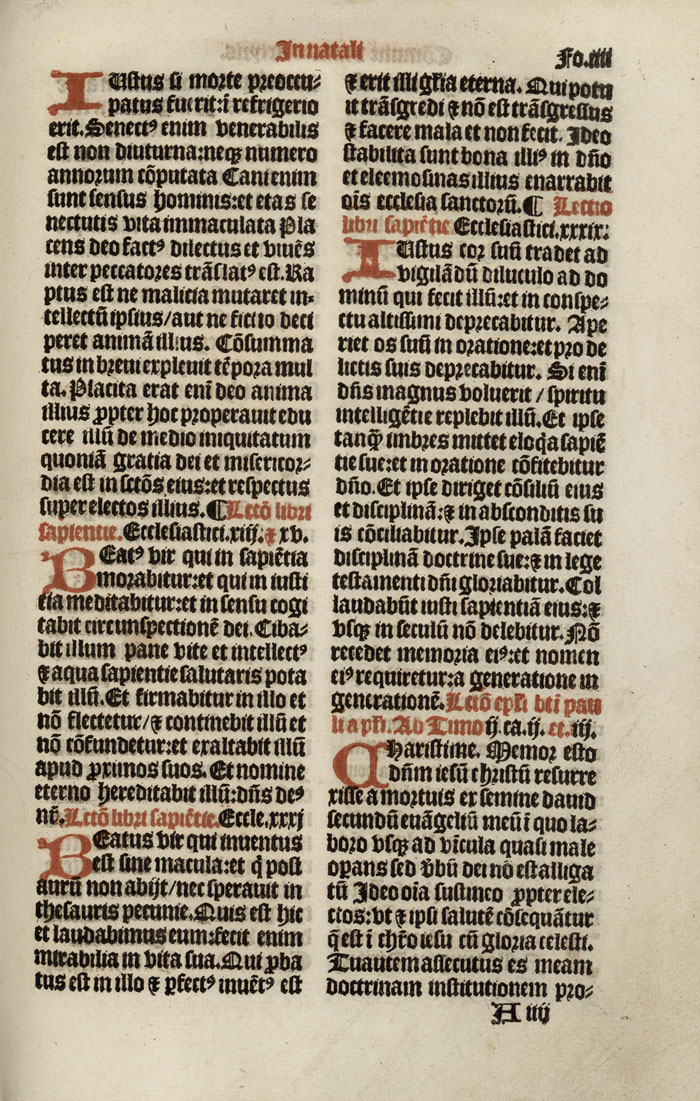 In natali
Fo.iiii
IUstus si morte preoccu-
patus fuerit:ĩ refrigerio
erit. Senectꝰ enim venerabilis
est non diuturna:neqꝫ numero
annorum cõputata Cani enim
sunt sensus hominis:et etas se
nectutis vita immaculata Pla
cens deo factꝰ dilectus et viuẽs
inter peccatores trãslatꝰ est. Ra
ptus est ne malicia mutaret in-
tellectũ ipsius/aut ne fictio deci
peret animã illius. Cõsumma
tus in breui expleuit tẽpora mul
ta. Placita erat enĩ deo anima
illius ꝓpter hoc properauit edu
cere illũ de medio iniquitatum
quoniã gratia dei et misericor-
dia est in sctõs eius:et respectus
super electos illius. ¶ Lctõ libri
sapientie. Ecclesiastici.xiij. ⁊ xv.
BEatꝰ vir qui in sapiẽtia
morabitur:et qui in iusti
tia meditabitur:et in sensu cogi
tabit circunspectionẽ dei. Ciba-
bit illum pane vite et intellectꝰ
⁊ aqua sapientie salutaris pota
bit illũ. Et firmabitur in illo et
nõ flectetur/⁊ continebit illũ et
nõ cõfundetur:et exaltabit illũ
apud ꝓximos suos. Et nomine
eterno hereditabit illũ:dñs deꝰ
nr̃. Lctõ libri sapiẽtie. Eccle.xxxj
BEatus vir qui inuentus
est sine macula:et q̃ post
aurũ non abijt/nec sperauit in
thesauris pecunie. Quis est hic
et laudabimus eum:fecit enim
mirabilia in vita sua. Qui ꝓba
tus est in illo ⁊ ꝑfectꝰ inuẽtꝰ est
⁊ erit illi gl̃ia eterna. Qui potu
it trãsgredi ⁊ nõ est trãsgressus
⁊ facere mala et non fecit. Ideo
stabilita sunt bona illiꝰ in dño
et eleemosinas illius enarrabit
oĩs ecclesia sanctorũ. ¶ Lectio
libri sapiẽtie Ecclesiastici.xxxix:
IUstus cor suũ tradet ad
vigilãdũ diluculo ad do
minũ qui fecit illũ:et in conspe-
ctu altissimi deprecabitur. Ape
riet os suũ in oratione:et pro de
lictis suis deprecabitur. Si enĩ
dñs magnus voluerit / spiritu
intelligẽtie replebit illũ. Et ipse
tanq̃ imbres mittet eloq̃a sapiẽ
tie sue:et in oratione cõfitebitur
dño. Et ipse diriget cõsiliũ eius
et disciplinã:⁊ in absconditis su
is cõciliabitur. Ipse palã faciet
disciplinã doctrine sue:⁊ in lege
testamenti dñi gloriabitur. Col
laudabũt iusti sapientiã eius:⁊
vsqꝫ in seculũ nõ delebitur. Nõ
recedet memoria eiꝰ:et nomen
eiꝰ requiretur:a generatione in
generationẽ. Lctõ epl̃i bt̃i pau
li apl̃i. Ad Timo ij.ca.ij. et.iij.
CHaristime. Memor esto
dñm iesũ christũ resurre
xisse a mortuis ex semine dauid
secundũ euãgeliũ meũ ĩ quo la-
boro vsqꝫ ad vĩcula quasi male
oꝑans sed v̾bũ dei nõ est alliga
tũ Ideo oĩa sustineo ꝓpter ele-
ctos:vt ⁊ ipsi salutẽ cõsequãtur
q̃ est ĩ chr̃o iesu cũ gloria celesti.
Tu autem assecutus es meam
doctrinam institutionem pro-
A iiij